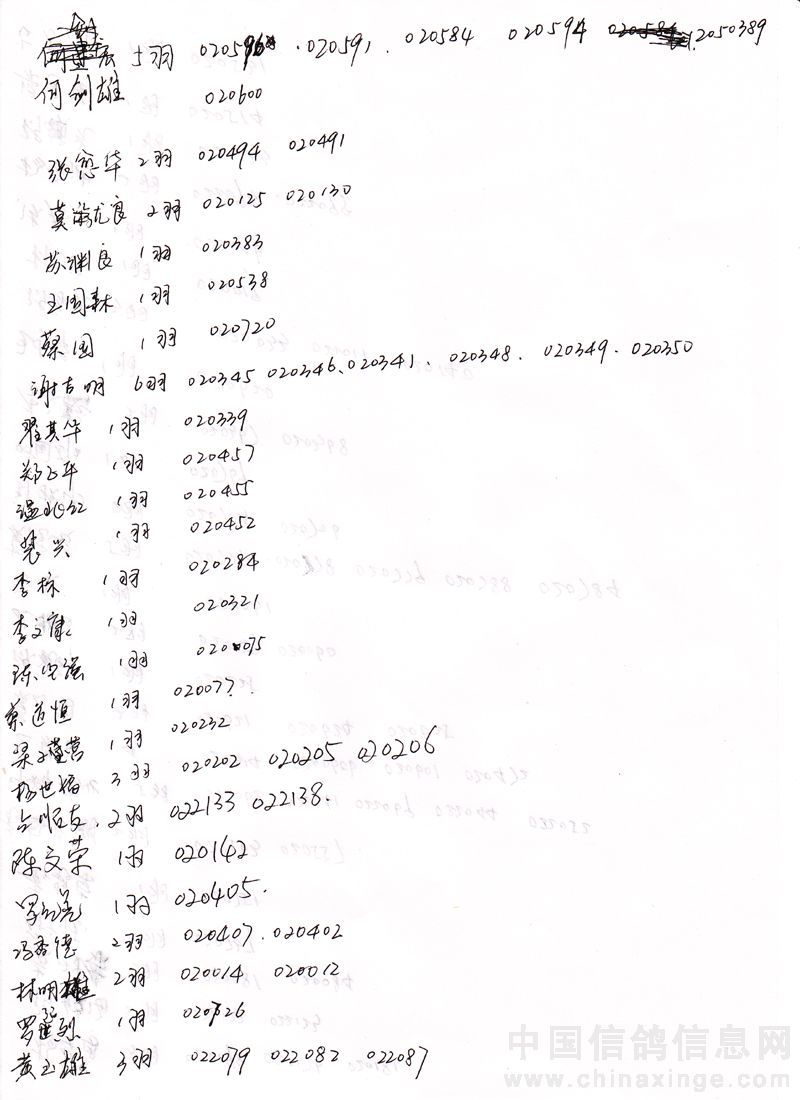 5羽 020591 . 020584 020594 2050389
何剑雄 020600
张恋华 2羽 020494 020491
莫 良 2羽 020125 020130
苏渊良 1羽 020383
王国森 1羽 020538
蔡国 1羽 020720
谢吉明 6羽 020345 020346、020341. 020348. 020349. 020350
翟其华 1羽 020339
郑 平 1羽 020457
温 1羽 020455
兴 1羽 020452
李栋 1羽 020284
李文 1羽 020321
陈 强 1羽
蔡道恒 1羽 020077.
梁 1羽 020232
杨世福 3羽 020202 020205 020206
顺友. 2羽 022133 022138.
陈文荣 1羽 020142
罗 1羽 020405.
冯 德 2羽 020407. 020402
林明雄 2羽 020014 020012
罗 烈 1羽
黄玉雄 3羽 022079 022082 022087
中国信鸽信息网
www.chinaxinge.com